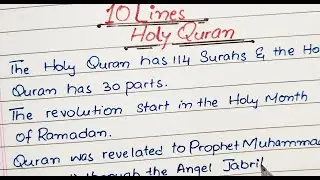 10 Lines
Holy Quran
The Holy Quran has 114 Surahs & the Ho
Quran has 30 parts.
The revolution start in the Holy Month
of Ramadan.
Quran was revelated to Prophet Muhamma
through the Angel Jabril